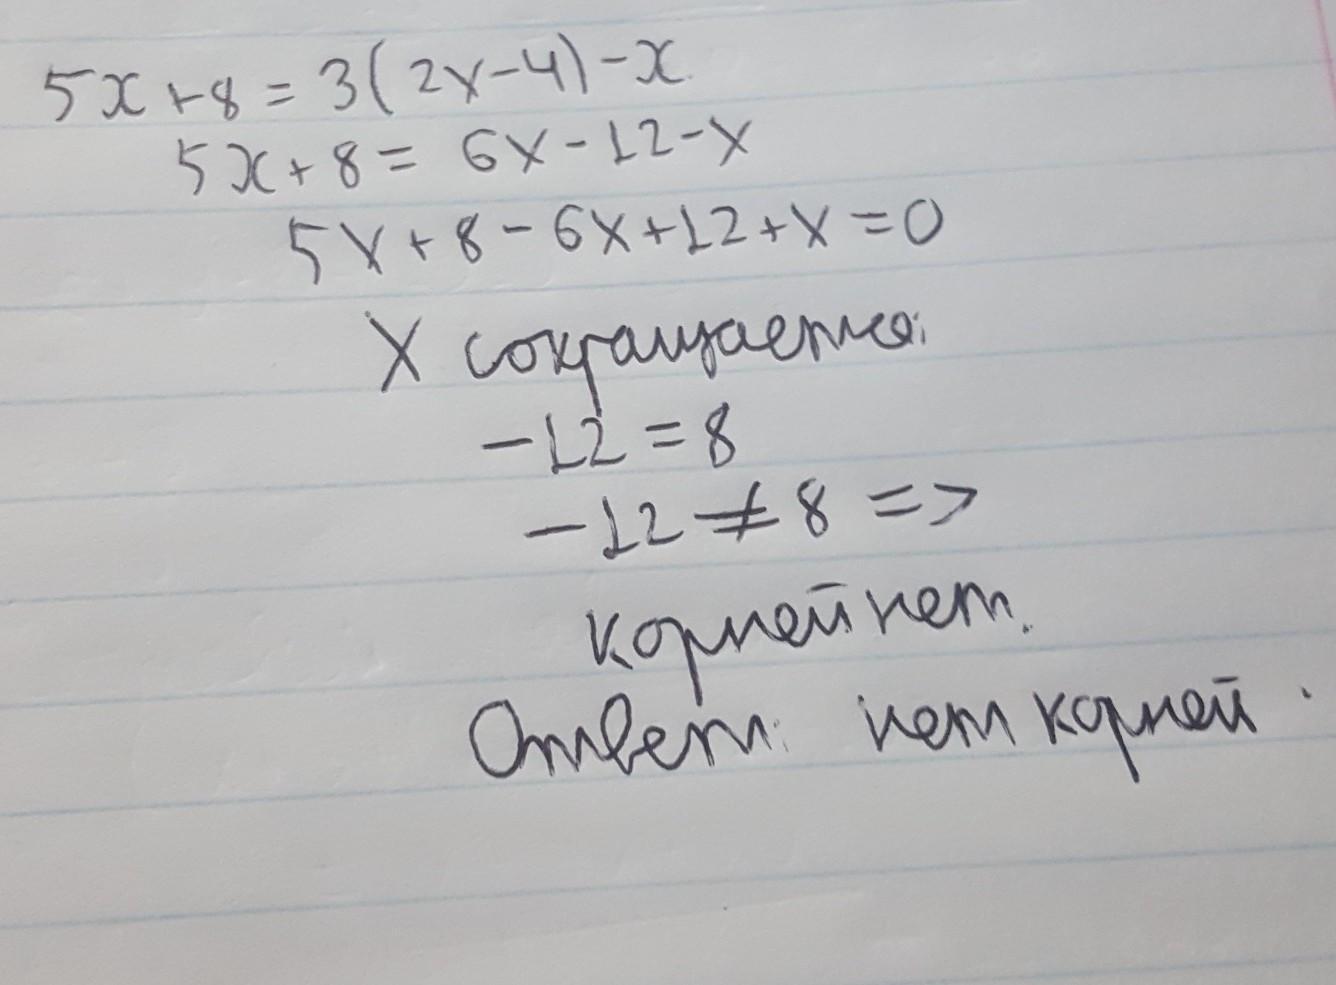 5x+8=3(2x-4)-x
5x+8=6x-12-x
5x+8-6x+12+x=0
X сокращается:
-12=8
-12≠8 =>
корней нет.
Ответ: нет корней.